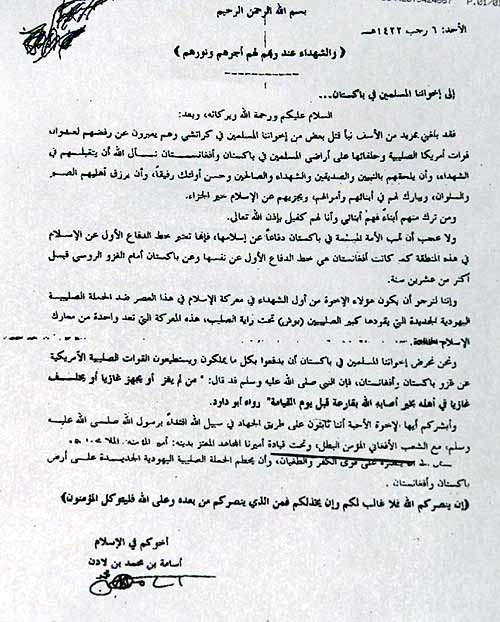 P.01/01
بسم الله الرحمن الرحيم
الأحد: ٦ رجب ١٤٢٢هـ
﴿ والشهداء عند ربهم لهم أجرهم ونورهم ﴾
إلى إخواننا المسلمين في باكستان...
السلام عليكم ورحمة الله وبركاته، وبعد:
فقد بلغني بمزيد من الأسف نبأ قتل بعض من إخواننا المسلمين في كراتشي وهم يعبرون عن رفضهم لعدوان
قوات أمريكا الصليبية وحلفائها على أراضي المسلمين في باكستان وأفغانستان نسأل الله أن يتقبلهم في
الشهداء، وأن يلحقهم بالنبيين والصديقين والشهداء والصالحين وحسن أولئك رفيقاً، وأن يرزق أهليهم الصبر
والسلوان، ويبارك لهم في أبنائهم وأموالهم، ويجزيهم عن الإسلام خير الجزاء.
ومن ترك منهم أبناءً فهم أبنائي وأنا لهم كفيل بإذن الله تعالى.
ولا عجب أن تهب الأمة المسلمة في باكستان دفاعاً عن إسلامها، فإنها تعتبر خط الدفاع الأول عن الإسلام
في هذه المنطقة كما كانت أفغانستان هي خط الدفاع الأول عن نفسها وعن باكستان أمام الغزو الروسي قبل
أكثر من عشرين سنة.
وإننا لنرجو أن يكون هؤلاء الإخوة من أول الشهداء في معركة الإسلام في هذا العصر ضد الحملة الصليبية
اليهودية الجديدة التي يقودها كبير الصليبيين (بوش) تحت راية الصليب، هذه المعركة التي تعد واحدة من معارك
الإسلام الخالدة.
ونحن نحرض إخواننا المسلمين في باكستان أن يدفعوا بكل ما يملكون ويستطيعون القوات الصليبية الأمريكية
عن غزو باكستان وأفغانستان، فإن النبي صلى الله عليه وسلم قد قال: "من لم يغز أو يجهز غازيا أو يخلف
غازيا في أهله بخير أصابه الله بقارعة قبل يوم القيامة" رواه أبو داود.
وأبشركم أيها الإخوة الأحبة أننا ثابتون على طريق الجهاد في سبيل الله اقتداءً برسول الله صلى الله عليه
وسلم، مع الشعب الأفغاني المؤمن البطل، وتحت قيادة أميرنا المجاهد المعتز بدينه: أمير المؤمنين: الملا
الله على قوى الكفر والطغيان، وأن يحطم الحملة الصليبية اليهودية الجديدة على أرض
باكستان وأفغانستان.
﴿إن ينصركم الله فلا غالب لكم وإن يخذلكم فمن الذي ينصركم من بعده وعلى الله فليتوكل المؤمنون﴾
أخوكم في الإسلام
أسامة بن محمد بن لادن